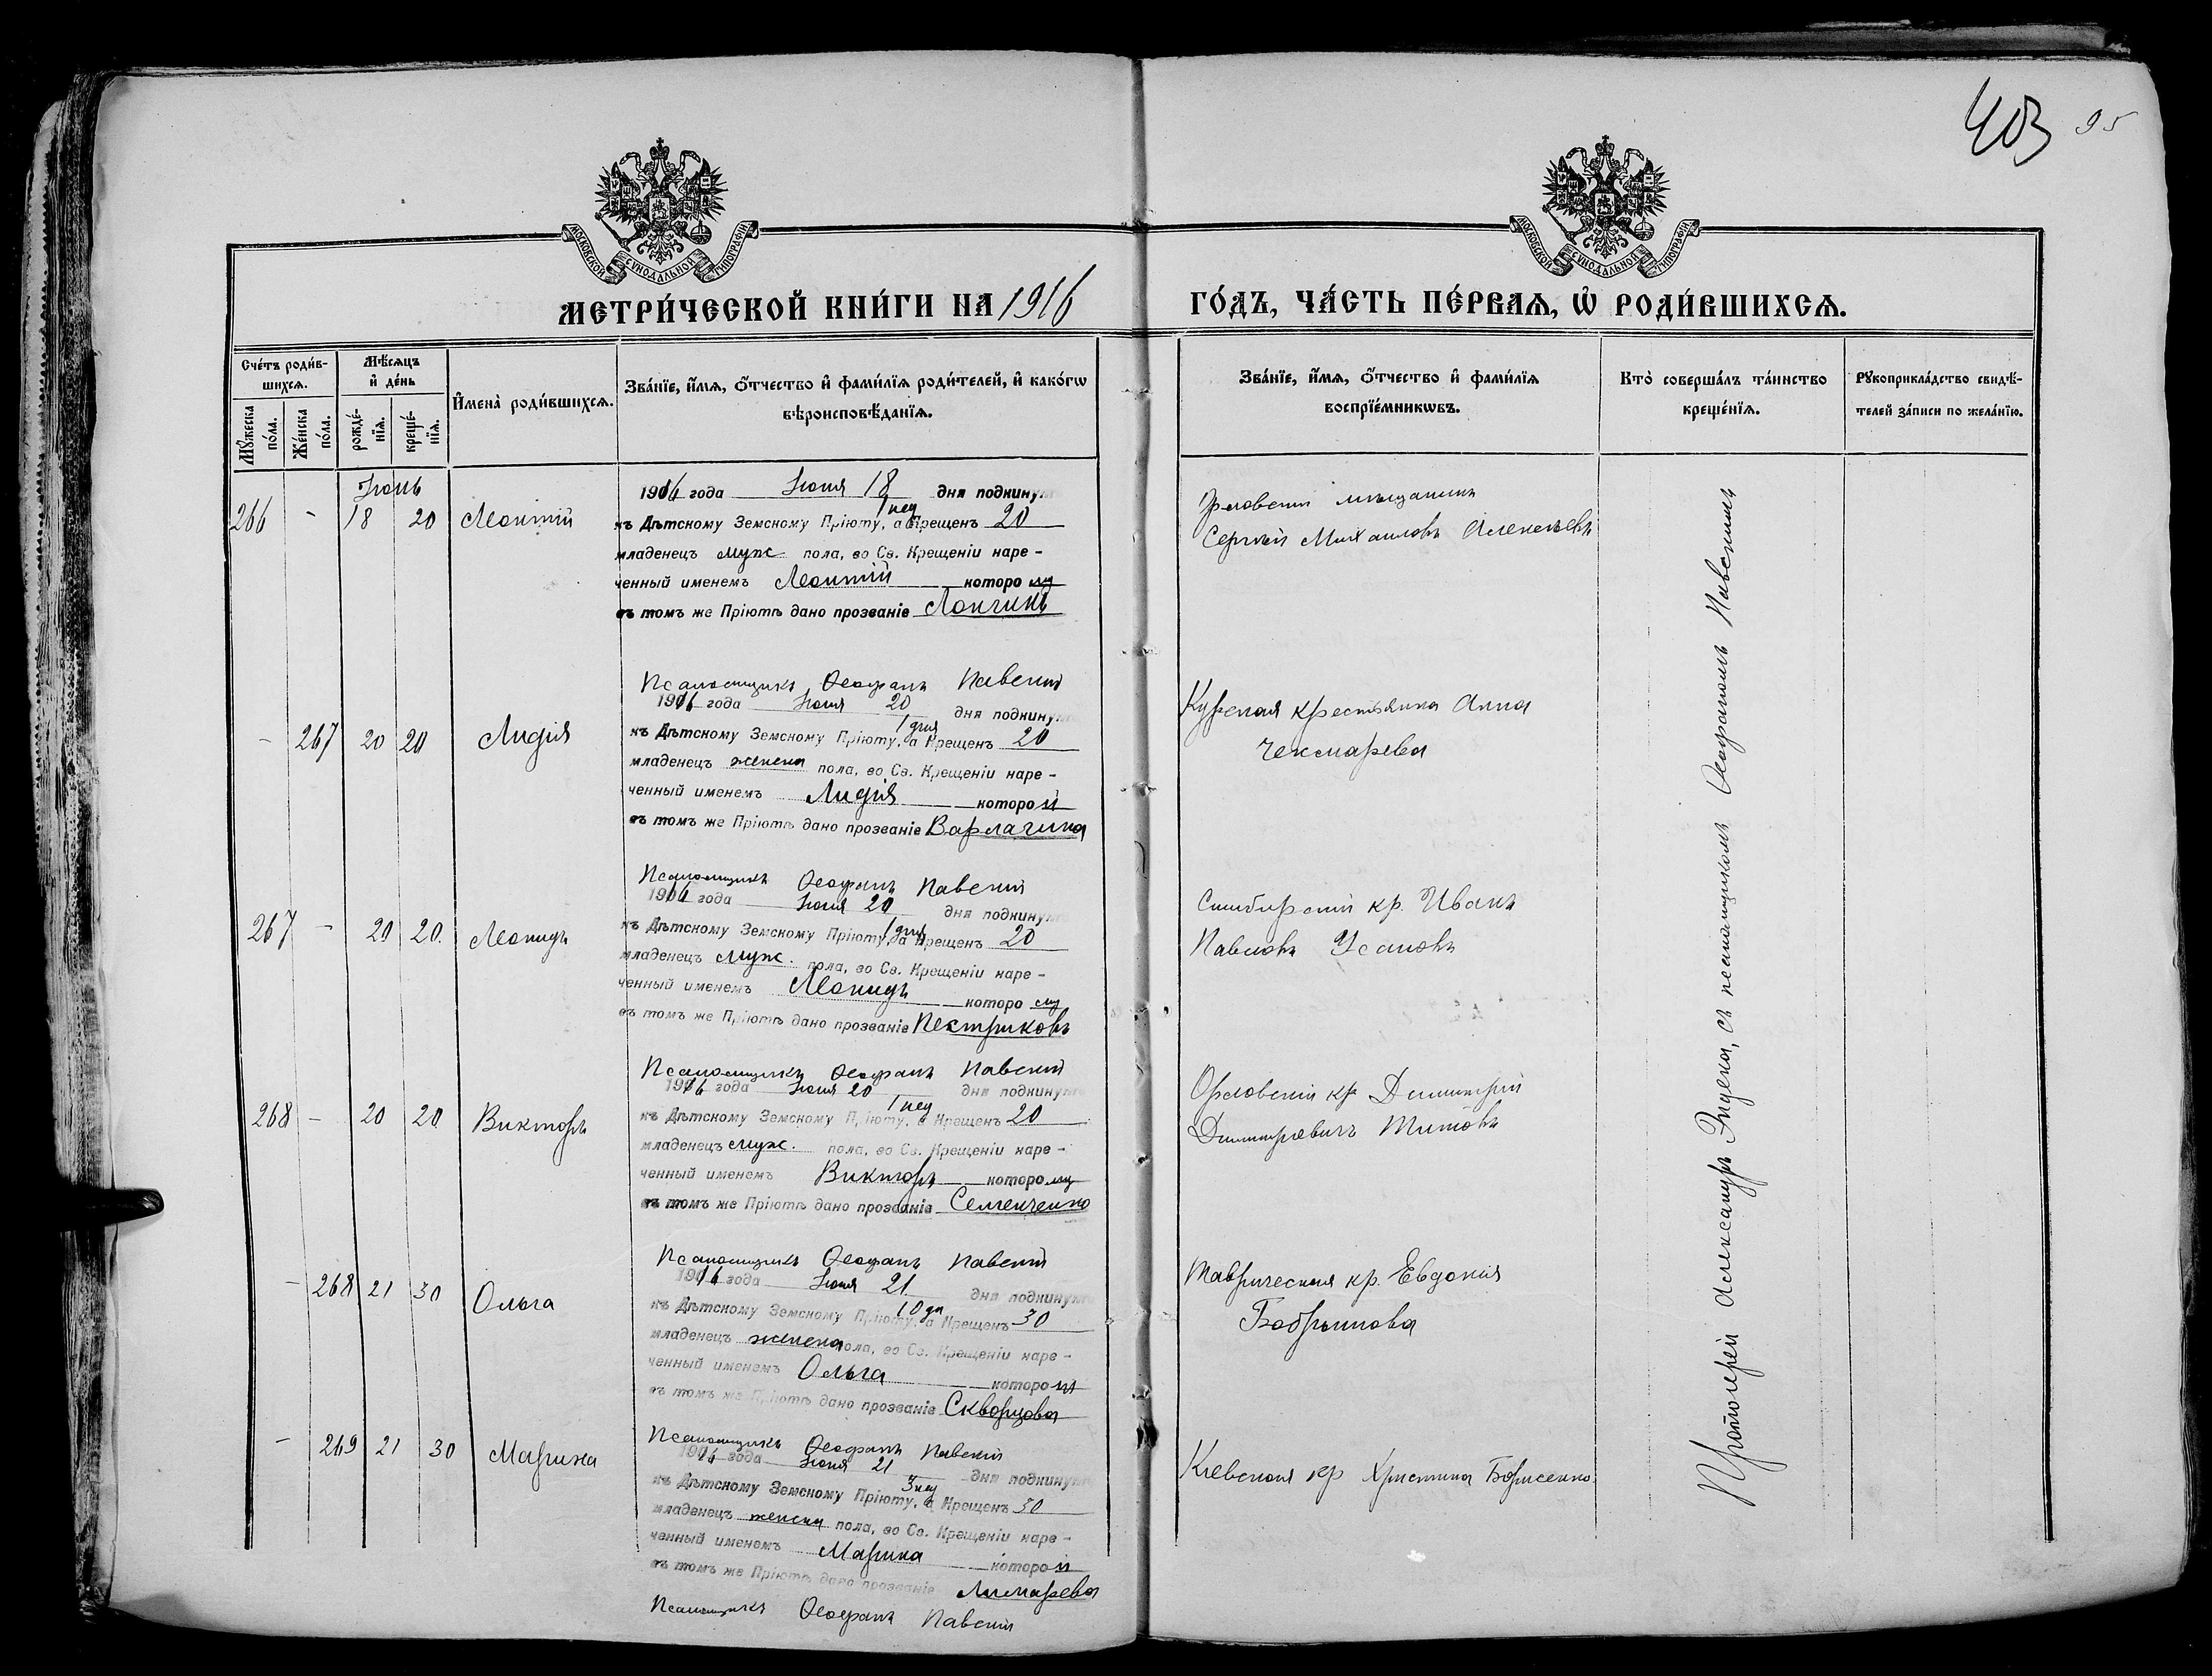 403 95
МОСКОВСКОЙ СѴНОДАЛЬНОЙ ТИПОГРАФІИ
МОСКОВСКОЙ СѴНОДАЛЬНОЙ ТИПОГРАФІИ
МЕТРИ́ЧЕСКОЙ КНИ́ГИ НА 1916
ГО́ДЪ, ЧА́СТЬ ПЕ́РВАЯ, Ѡ РОДИ́ВШИХСЯ.
Сче́тъ роди́в-
шихся.
Мꙋ́жеска
по́ла.
Же́нска
по́ла.
Мѣ́сяцъ
и де́нь
рожде́-
нїя.
креще́-
нїя.
И҆мена̀ роди́вшихся.
Зва́нїе, и҆́мя, ѻ҆́тчество и҆ фами́лїя роди́телей, и҆ како́гѡ
вѣроисповѣ́данїя.
Зва́нїе, и҆́мя, ѻ҆́тчество и҆ фами́лїя
воспрїе́мникѡвъ.
Кто̀ соверша́лъ та́инство
креще́нїя.
Рꙋкоприкла́дство свидѣ́-
телей за́писи по жела́нїю.
Іюнь
266 - 18 20 Леонтій
1916 года Іюня 18 дня подкину
1 нед
къ Дѣтскому Земскому Пріюту, а Крещенъ 20
младенецъ муж пола, во Св. Крещеніи наре-
ченный именемъ Леонтій которо му
въ томъ же Пріютѣ дано прозваніе Лончикъ
Орловскій мѣщанинъ
Сергѣй Михаиловъ Алексѣевъ
Псаломщикъ Ѳеофанъ Павскій
- 267 20 20 Лидія
1916 года Іюня 20 дня подкину
1 дня
къ Дѣтскому Земскому Пріюту, а Крещенъ 20
младенецъ женска пола, во Св. Крещеніи наре-
ченный именемъ Лидія которо й
въ томъ же Пріютѣ дано прозваніе Варлагина
Курская крестьянка Анна
Чекмарева
Псаломщикъ Ѳеофанъ Павскій
267 - 20 20 Леонидъ
1916 года Іюня 20 дня подкину
1 дня
къ Дѣтскому Земскому Пріюту, а Крещенъ 20
младенецъ муж. пола, во Св. Крещеніи наре-
ченный именемъ Леонидъ которо му
въ томъ же Пріютѣ дано прозваніе Пестриковъ
Симбирскій кр. Иванъ
Павловъ Усановъ
Псаломщикъ Ѳеофанъ Павскій
268 - 20 20 Викторъ
1916 года Іюня 20 дня подкину
1 нед
къ Дѣтскому Земскому Пріюту, а Крещенъ 20
младенецъ муж. пола, во Св. Крещеніи наре-
ченный именемъ Викторъ которо му
въ томъ же Пріютѣ дано прозваніе Семенченко
Орловскій кр Димитрій
Димитріевичъ Титовъ
Псаломщикъ Ѳеофанъ Павскій
- 268 21 30 Ольга
1916 года Іюня 21 дня подкину
10 дн
къ Дѣтскому Земскому Пріюту, а Крещенъ 30
младенецъ женска пола, во Св. Крещеніи наре-
ченный именемъ Ольга которо й
въ томъ же Пріютѣ дано прозваніе Скворцова
Таврическая кр. Евдокія
Бобрышова
Псаломщикъ Ѳеофанъ Павскій
- 269 21 30 Марина
1916 года Іюня 21 дня подкину
3 нед
къ Дѣтскому Земскому Пріюту, а Крещенъ 30
младенецъ женска пола, во Св. Крещеніи наре-
ченный именемъ Марина которо й
въ томъ же Пріютѣ дано прозваніе Лимарева
Кіевская кр Христина Борисенко
Псаломщикъ Ѳеофанъ Павскій
Протоіерей Александръ Эндека, съ псаломщикомъ Ѳеофаномъ Павскимъ